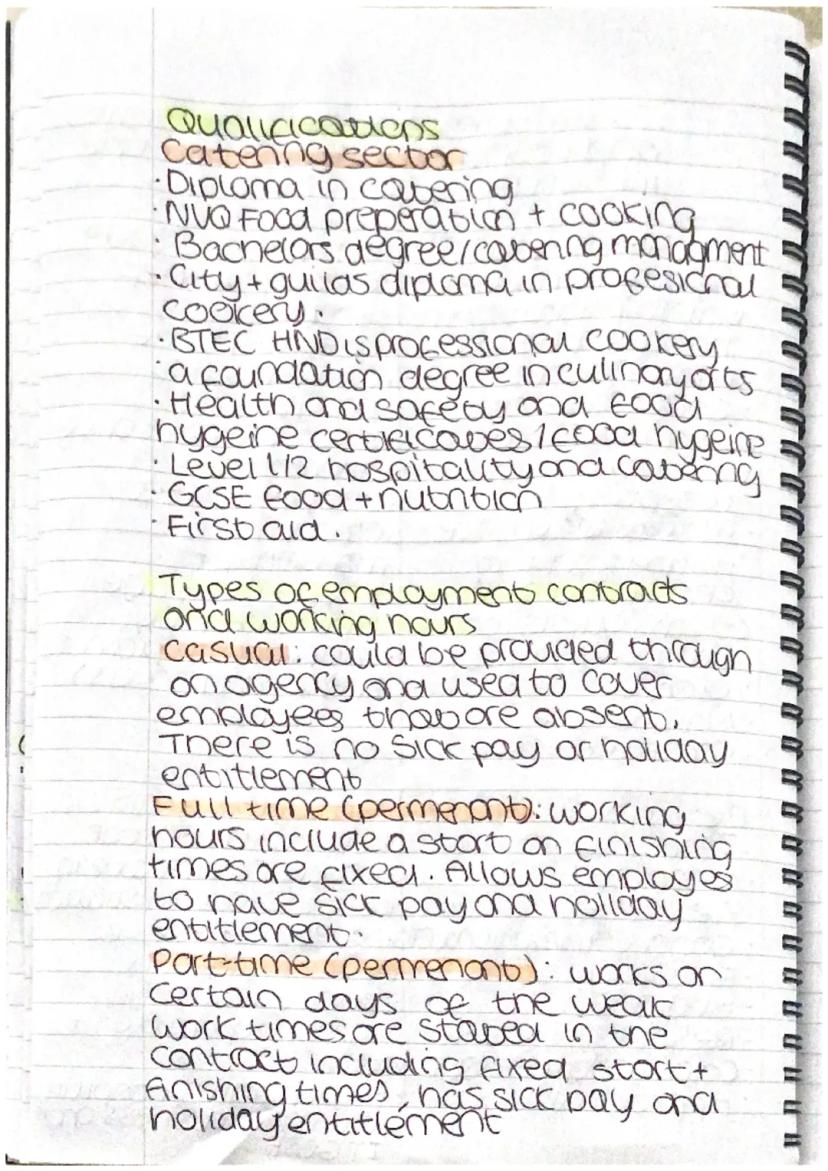 Qualifications
Catering sector
· Diploma in catering
· NVQ Food preperation + cooking
· Bachelors degree/catering managment
· City + guilds diploma in profesional
cookery.
· BTEC HND is professional cookery
a foundation degree in culinary arts
· Health and safety and food
hygeine certificates / food hygeine
· Level 1/2 hospitality and catering
· GCSE food + nutrition
· First aid.
Types of employment contracts
and working hours
Casual: could be provided through
an agency and used to cover
employees that are absent.
There is no sick pay or holiday
entitlement
Full time (permenant): working
hours include a start on finishing
times are fixed. Allows employes
to have sick pay and holiday
entitlement.
Part-time (permenant): works on
certain days of the weak
work times are stated in the
contract including fixed start +
finishing times, has sick pay and
holiday entitlement